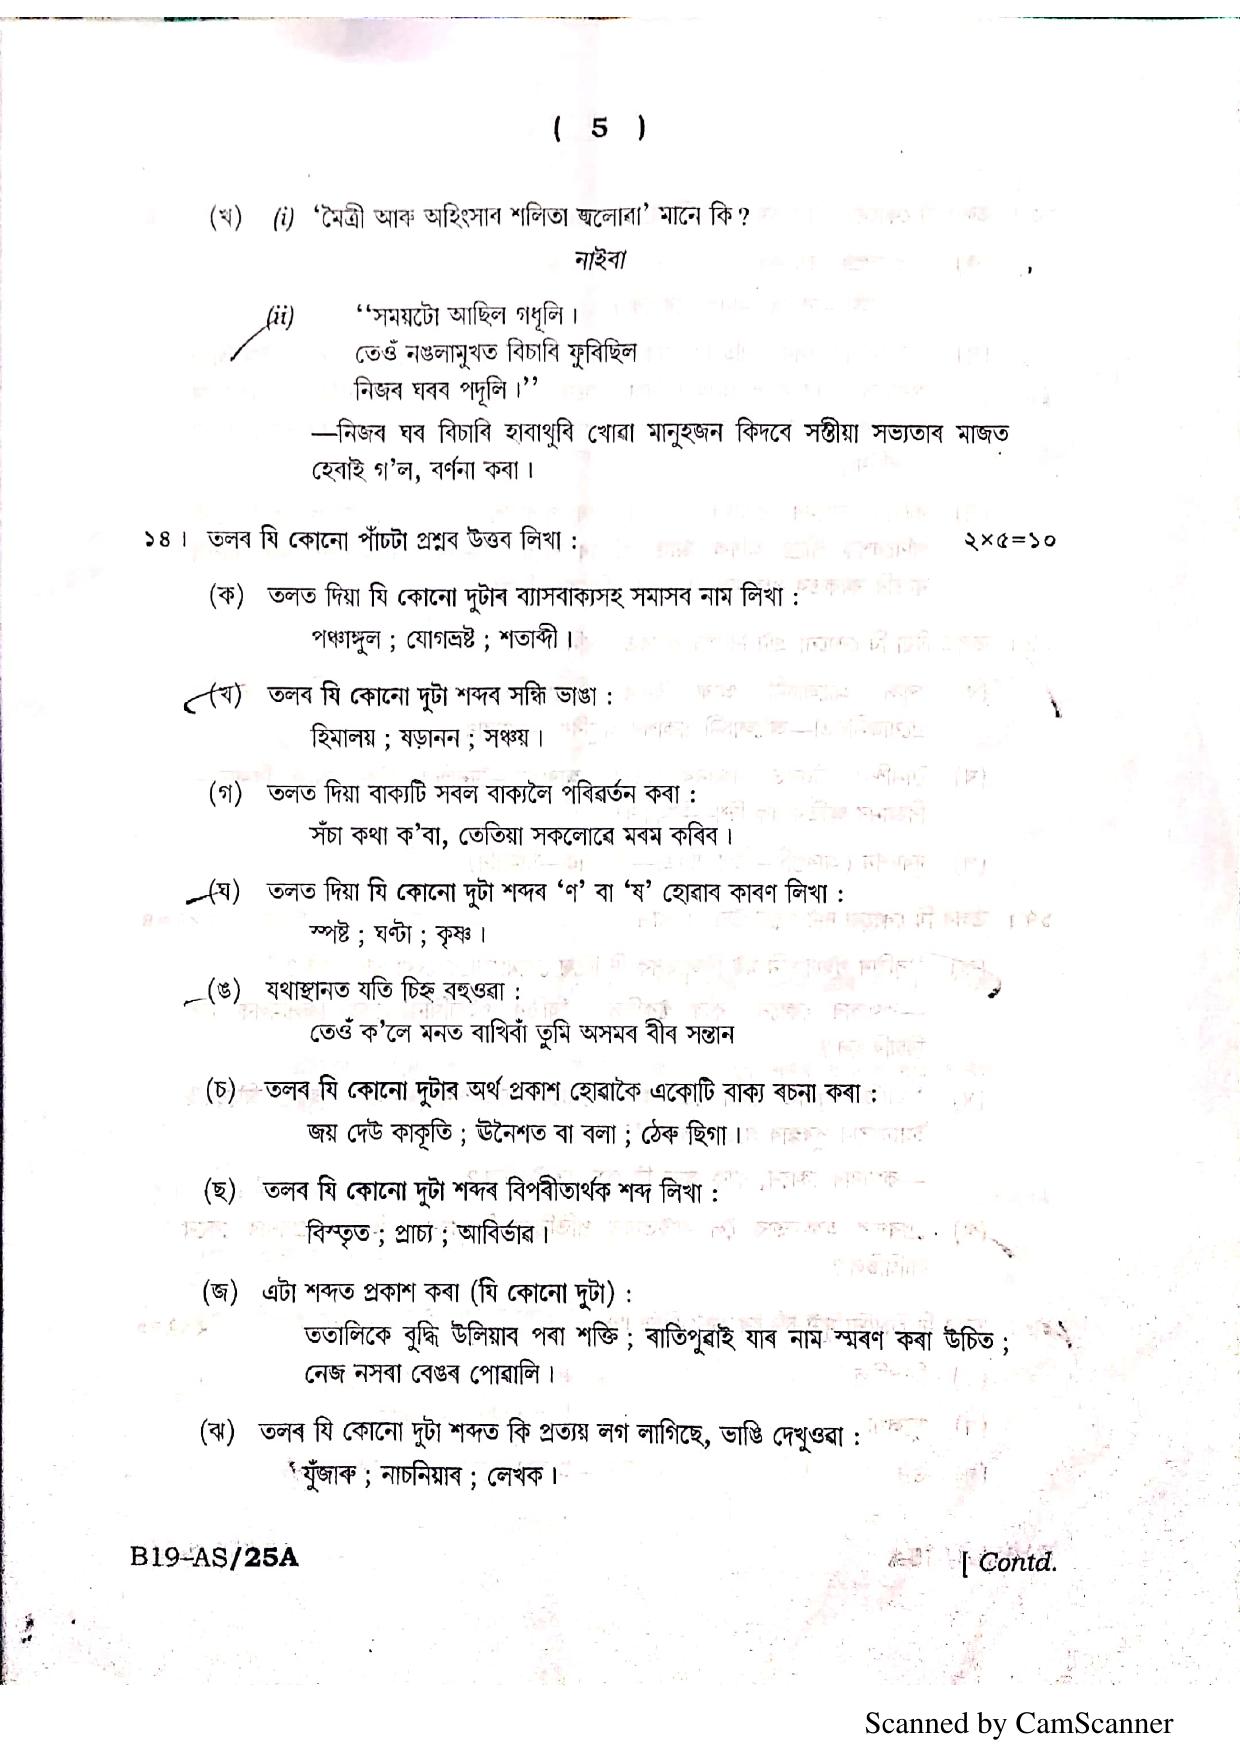 ( 5 )
(খ) (i) ‘মৈত্ৰী আৰু অহিংসাৰ শলিতা জ্বলোৱা’ মানে কি ?
নাইবা
(ii) ‘‘সময়টো আছিল গধূলি ।
তেওঁ নঙলামুখত বিচাৰি ফুৰিছিল
নিজৰ ঘৰৰ পদূলি ।’’
—নিজৰ ঘৰ বিচাৰি হাবাথুৰি খোৱা মানুহজন কিদৰে সস্তীয়া সভ্যতাৰ মাজত
হেৰাই গ’ল, বৰ্ণনা কৰা ।
১৪ । তলৰ যি কোনো পাঁচটা প্ৰশ্নৰ উত্তৰ লিখা : ২×৫=১০
(ক) তলত দিয়া যি কোনো দুটাৰ ব্যাসবাক্যসহ সমাসৰ নাম লিখা :
পঞ্চাঙ্গুল ; যোগভ্ৰষ্ট ; শতাব্দী ।
(খ) তলৰ যি কোনো দুটা শব্দৰ সন্ধি ভাঙা :
হিমালয় ; ষড়ানন ; সঞ্চয় ।
(গ) তলত দিয়া বাক্যটি সৰল বাক্যলৈ পৰিৱৰ্তন কৰা :
সঁচা কথা ক’বা, তেতিয়া সকলোৱে মৰম কৰিব ।
(ঘ) তলত দিয়া যি কোনো দুটা শব্দৰ ‘ণ’ বা ‘ষ’ হোৱাৰ কাৰণ লিখা :
স্পষ্ট ; ঘণ্টা ; কৃষ্ণ ।
(ঙ) যথাস্থানত যতি চিহ্ন বহুওৱা :
তেওঁ ক’লে মনত ৰাখিবাঁ তুমি অসমৰ বীৰ সন্তান
(চ) তলৰ যি কোনো দুটাৰ অৰ্থ প্ৰকাশ হোৱাকৈ একোটি বাক্য ৰচনা কৰা :
জয় দেউ কাকূতি ; ঊনৈশত বা বলা ; ঠেৰু ছিগা ।
(ছ) তলৰ যি কোনো দুটা শব্দৰ বিপৰীতাৰ্থক শব্দ লিখা :
বিস্তৃত ; প্ৰাচ্য ; আবিৰ্ভাৱ ।
(জ) এটা শব্দত প্ৰকাশ কৰা (যি কোনো দুটা) :
ততালিকে বুদ্ধি উলিয়াব পৰা শক্তি ; ৰাতিপুৱাই যাৰ নাম স্মৰণ কৰা উচিত ;
নেজ নসৰা বেঙৰ পোৱালি ।
(ঝ) তলৰ যি কোনো দুটা শব্দত কি প্ৰত্যয় লগ লাগিছে, ভাঙি দেখুওৱা :
যুঁজাৰু ; নাচনিয়াৰ ; লেখক ।
B19–AS/25A [ Contd.
Scanned by CamScanner